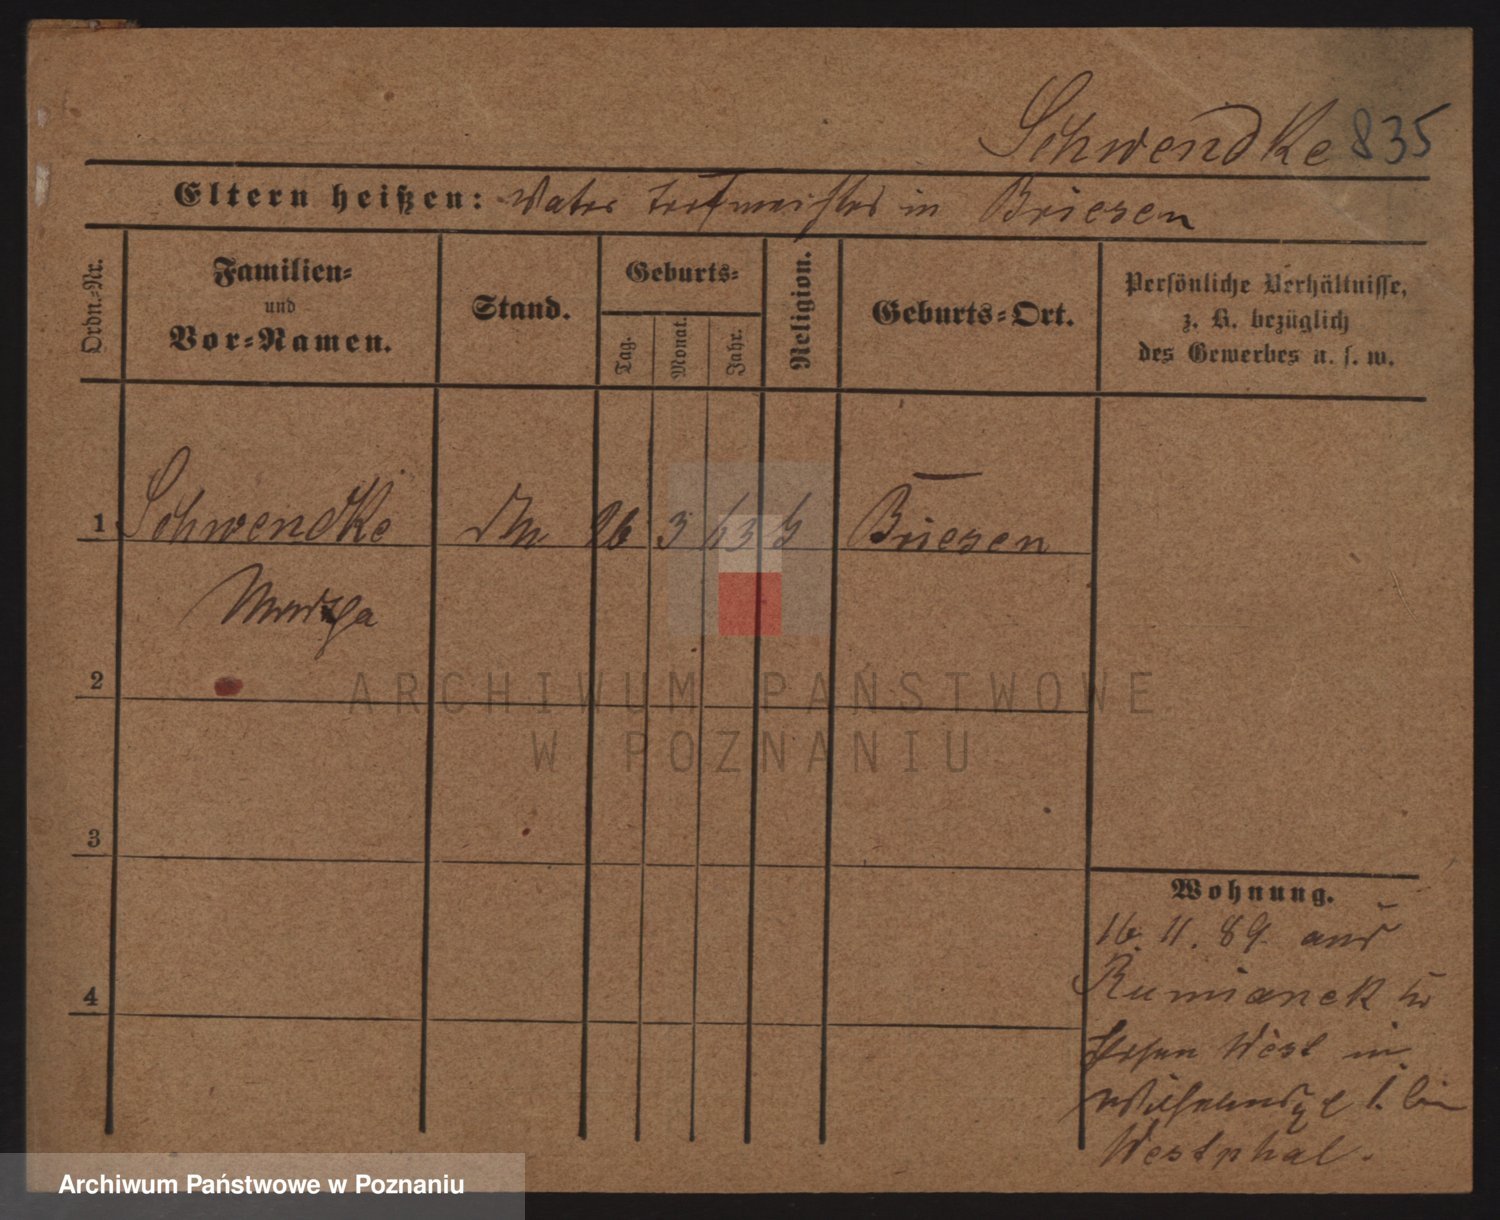 Schwendke 835
Eltern heißen: Vater in Briesen
Ordn.-Nr.
Familien-
und
Vor-Namen.
Stand.
Geburts-
Tag.
Monat.
Jahr.
Religion.
Geburts-Ort.
Persönliche Verhältnisse,
z. B. bezüglich
des Gewerbes u. s. w.
1 Schwendke 26 3 63 Briesen
2
3
4
Wohnung.
16. 11. 89 aus
Rumianek
Posen West in
bei
Westphal.
ARCHIWUM PAŃSTWOWE
W POZNANIU
Archiwum Państwowe w Poznaniu